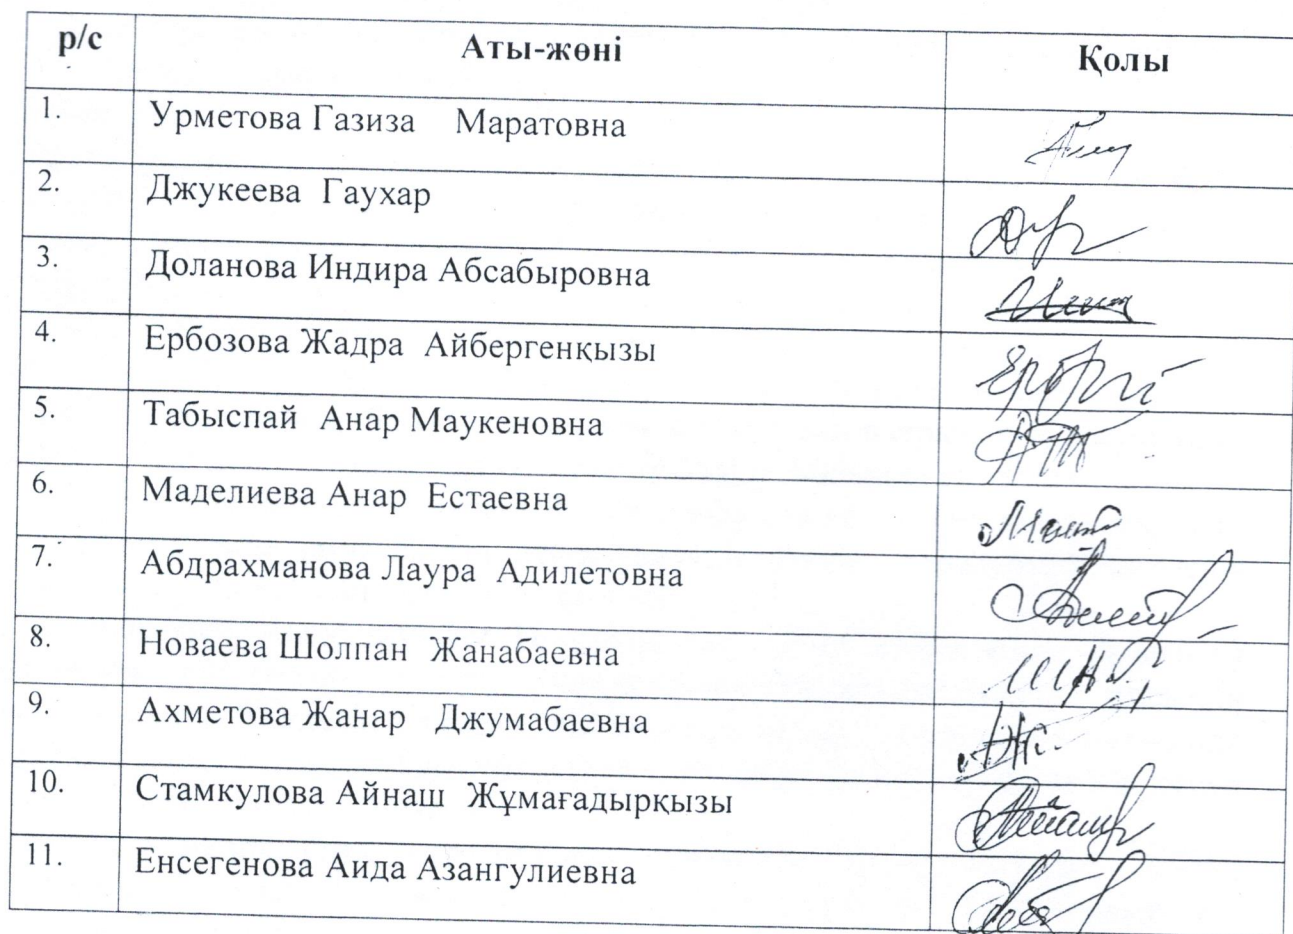 р/с Аты-жөні Қолы
1. Урметова Газиза Маратовна
2. Джукеева Гаухар
3. Доланова Индира Абсабыровна
4. Ербозова Жадра Айбергенқызы
5. Табыспай Анар Маукеновна
6. Маделиева Анар Естаевна
7. Абдрахманова Лаура Адилетовна
8. Новаева Шолпан Жанабаевна
9. Ахметова Жанар Джумабаевна
10. Стамкулова Айнаш Жұмағадырқызы
11. Енсегенова Аида Азангулиевна